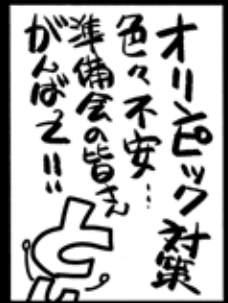 オリンピック対策
色々不安…
準備会の皆さん
がんばって!!